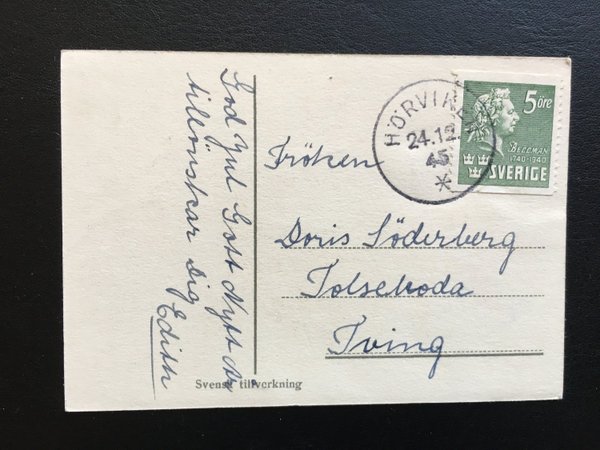 God Jul Gott Nytt År
tillönskar Dig
Edith
Svensk tillverkning
HÖRVIKEN
24.12.
45
5 öre
BELLMAN
1740-1940
SVERIGE
Fröken
Doris Söderberg
Tolseboda
Tving